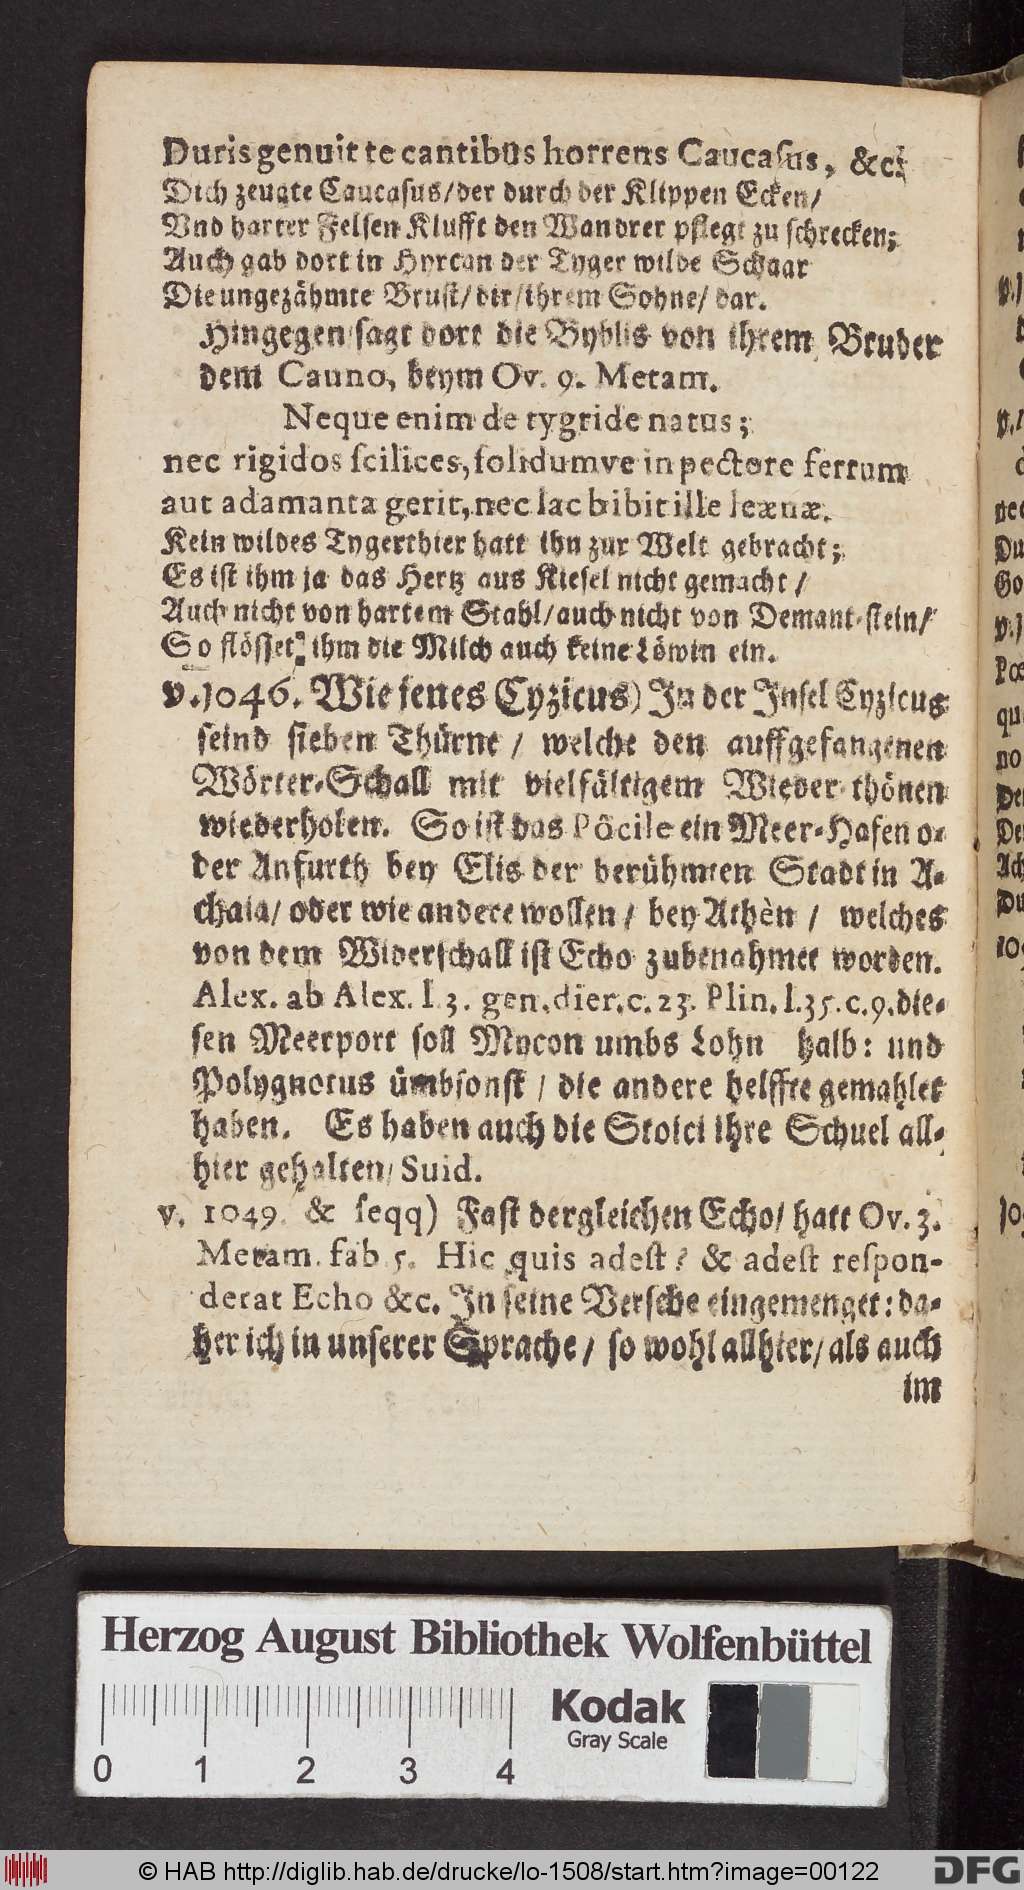 Duris genuit te cantibus horrens Caucasus, &c.
Dich zeugte Caucasus/ der durch der Klippen Ecken/
Vnd harter Felsen Klufft den Wandrer pflegt zu schrecken;
Auch gab dort in Hyrcan der Tyger wilde Schaar
Die ungezähmte Brust/ dir/ ihrem Sohne/ dar.
Hingegen sagt dort die Byblis von ihrem Bruder
dem Cauno, beym Ov. 9. Metam.
Neque enim de tygride natus;
nec rigidos ſcilices, ſolidumve in pectore ferrum
aut adamanta gerit, nec lac bibit ille leænæ.
Kein wildes Tygerthier hatt ihn zur Welt gebracht;
Es ist ihm ja das Hertz aus Kiesel nicht gemacht/
Auch nicht von hartem Stahl/ auch nicht von Demant-stein/
So flösset ihm die Milch auch keine Löwin ein.
v. 1046. Wie jenes Cyzicus) In der Insel Cyzicus
seind sieben Thürne/ welche den auffgefangenen
Wörter-Schall mit vielfältigem Wieder-thönen
wiederholen. So ist das Pöcile ein Meer-Hafen o-
der Anfurth bey Elis der berühmten Stadt in A-
chaia/ oder wie andere wollen/ bey Athèn/ welches
von dem Widerschall ist Echo zubenahmet worden.
Alex. ab Alex. l. 3. gen. dier. c. 23. Plin. l. 35. c. 9. die-
sen Meerport soll Mycon umbs Lohn halb: und
Polygnotus ümbsonst/ die andere helffte gemahlet
haben. Es haben auch die Stoici ihre Schuel all-
hier gehalten/ Suid.
v. 1049. & ſeqq) Fast dergleichen Echo/ hatt Ov. 3.
Metam. fab. 5. Hic quis adeſt? & adeſt reſpon-
derat Echo &c. In seine Versche eingemenget: da-
her ich in unserer Sprache/ so wohl allhier/ als auch
im
Herzog August Bibliothek Wolfenbüttel
Kodak
Gray Scale
0 1 2 3 4
© HAB http://diglib.hab.de/drucke/lo-1508/start.htm?image=00122
DFG